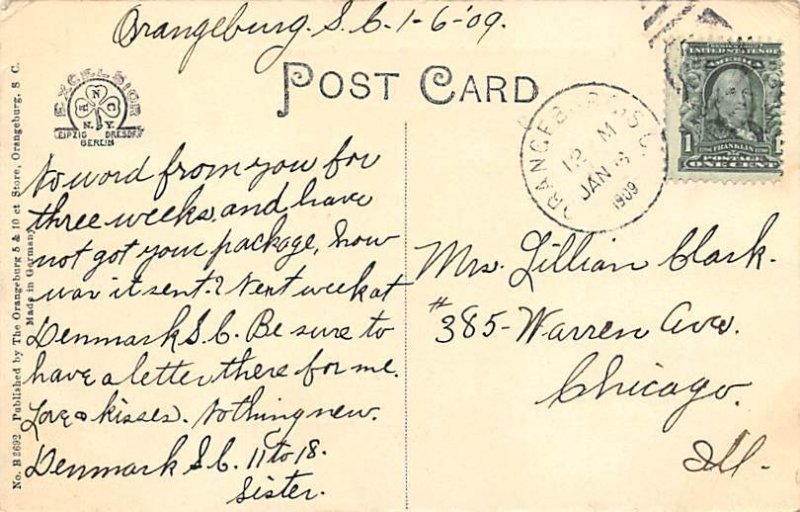 Orangeburg. S. C. 1-6-'09.
POST CARD
EXCELSIOR
N
R C
N.Y.
LEIPZIG DRESDEN
BERLIN
ORANGEBURG, S.C.
12 M
JAN 6
1909
UNITED STATES OF
AMERICA
1
FRANKLIN
POSTAGE
ONE CENT
No word from you for
three weeks and have
not got your package, how
was it sent? Next week at
Denmark S.C. Be sure to
have a letter there for me.
Love & kisses. Nothing new.
Denmark S.C. 11 to 18.
Sister.
Mrs. Lillian Clark.
#385- Warren Ave.
Chicago.
Ill.
No. B 2692 Published by The Orangeburg 5 & 10 ct Store, Orangeburg, S C.
Made in Germany